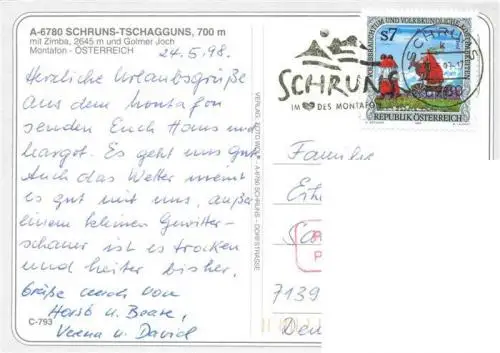 A-6780 SCHRUNS-TSCHAGGUNS, 700 m
mit Zimba, 2645 m und Golmer Joch
Montafon - ÖSTERREICH
24.5.98.
Herzliche Urlaubsgrüße
aus dem Montafon
senden Euch Hans und
Margot. Es geht uns gut.
Auch das Wetter meint
es gut mit uns, außer
einem kleinen Gewitter-
schauer ist es trocken
und heiter bisher.
Grüße auch von
Horst u. Beate,
Verena u. David
C-793
VERLAG - A-6780 SCHRUNS - DORFSTRASSE
SCHRUNS
IM DES MONTAFON
S7
REPUBLIK ÖSTERREICH
SCHRUNS
6780
Familie
7139